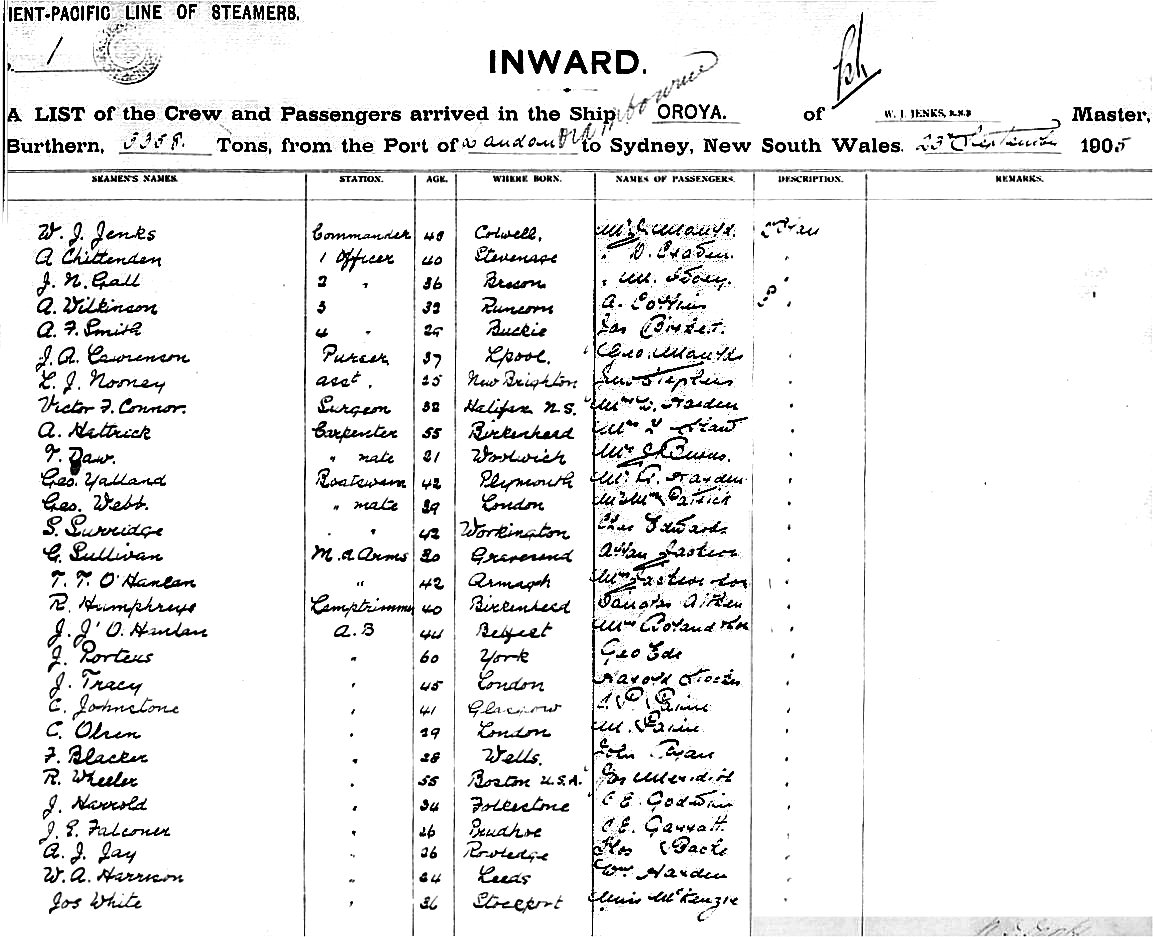 IENT-PACIFIC LINE OF STEAMERS.
1
INWARD.
A LIST of the Crew and Passengers arrived in the Ship OROYA. of W. J. JENKS, R.N.R Master,
Burthern, 5358. Tons, from the Port of London to Sydney, New South Wales. 23rd September 1905
SEAMEN'S NAMES. STATION. AGE. WHERE BORN. NAMES OF PASSENGERS. DESCRIPTION. REMARKS.
W. J. Jenks Commander 48 Colwell,
A Chittenden 1 Officer 40 Stevenage
J. N. Gall 2 " 36 Brecon
A. Wilkinson 3 32 Runcorn A.
A. F. Smith 4 " 29 Buckie Jas
J. A. Lawrenson Purser 37 Lpool. Geo.
L. J. Nooney asst. 25 New Brighton Stephens
Victor F. Connor. Surgeon 32 Halifax N.S. Mrs Harden
A. Hettrick Carpenter 55 Birkenhead Mrs
T. Daw. " mate 21 Woolwich Mrs J Burns.
Geo. Yalland Boatswain 42 Plymouth Mr Harden
Geo. Webb. " mate 39 London Patrick
S. Surridge " 42 Workington Chas Edwards
G. Sullivan M. a Arms 30 Gravesend Allan Jackson
T. T. O'Hanlan " 42 Armagh Mrs Jackson
R. Humphreys Lamptrimmer 40 Birkenhead Douglas Aitken
J. J. O. Hanlan A.B 44 Belfast Mrs Boland
J. Porteus " 60 York Geo Ede
J. Tracy " 45 London Harold
C. Johnstone " 41 Glasgow
C. Olsen " 29 London M.
F. Blacker " 28 Wells. John Ryan
R. Wheeler " 55 Boston U.S.A. Jas Meridith
J. Harrold " 34 Folkestone C E. Godwin
J. E. Falconer " 26 Prudhoe C.E. Garratt.
A. J. Jay " 26 Rowledge
W. A. Harrison " 24 Leeds Wm Harden
Jos White " 36 Stockport Miss McKenzie